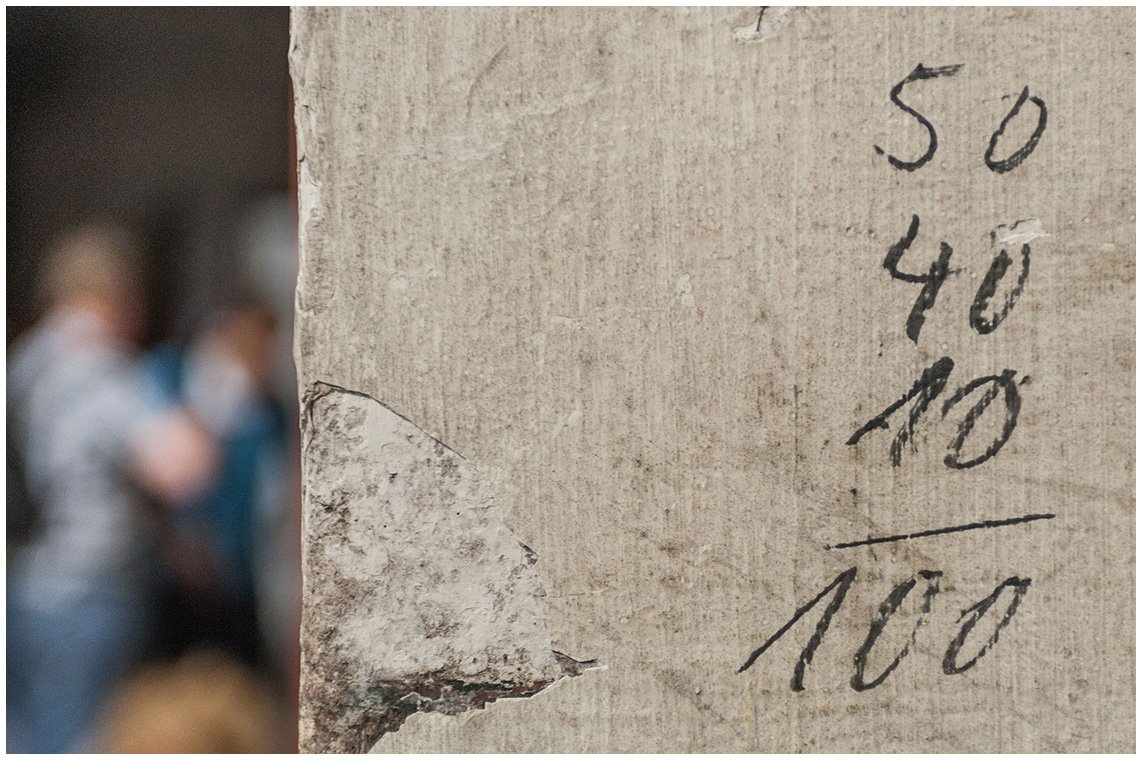 50
40
10
100